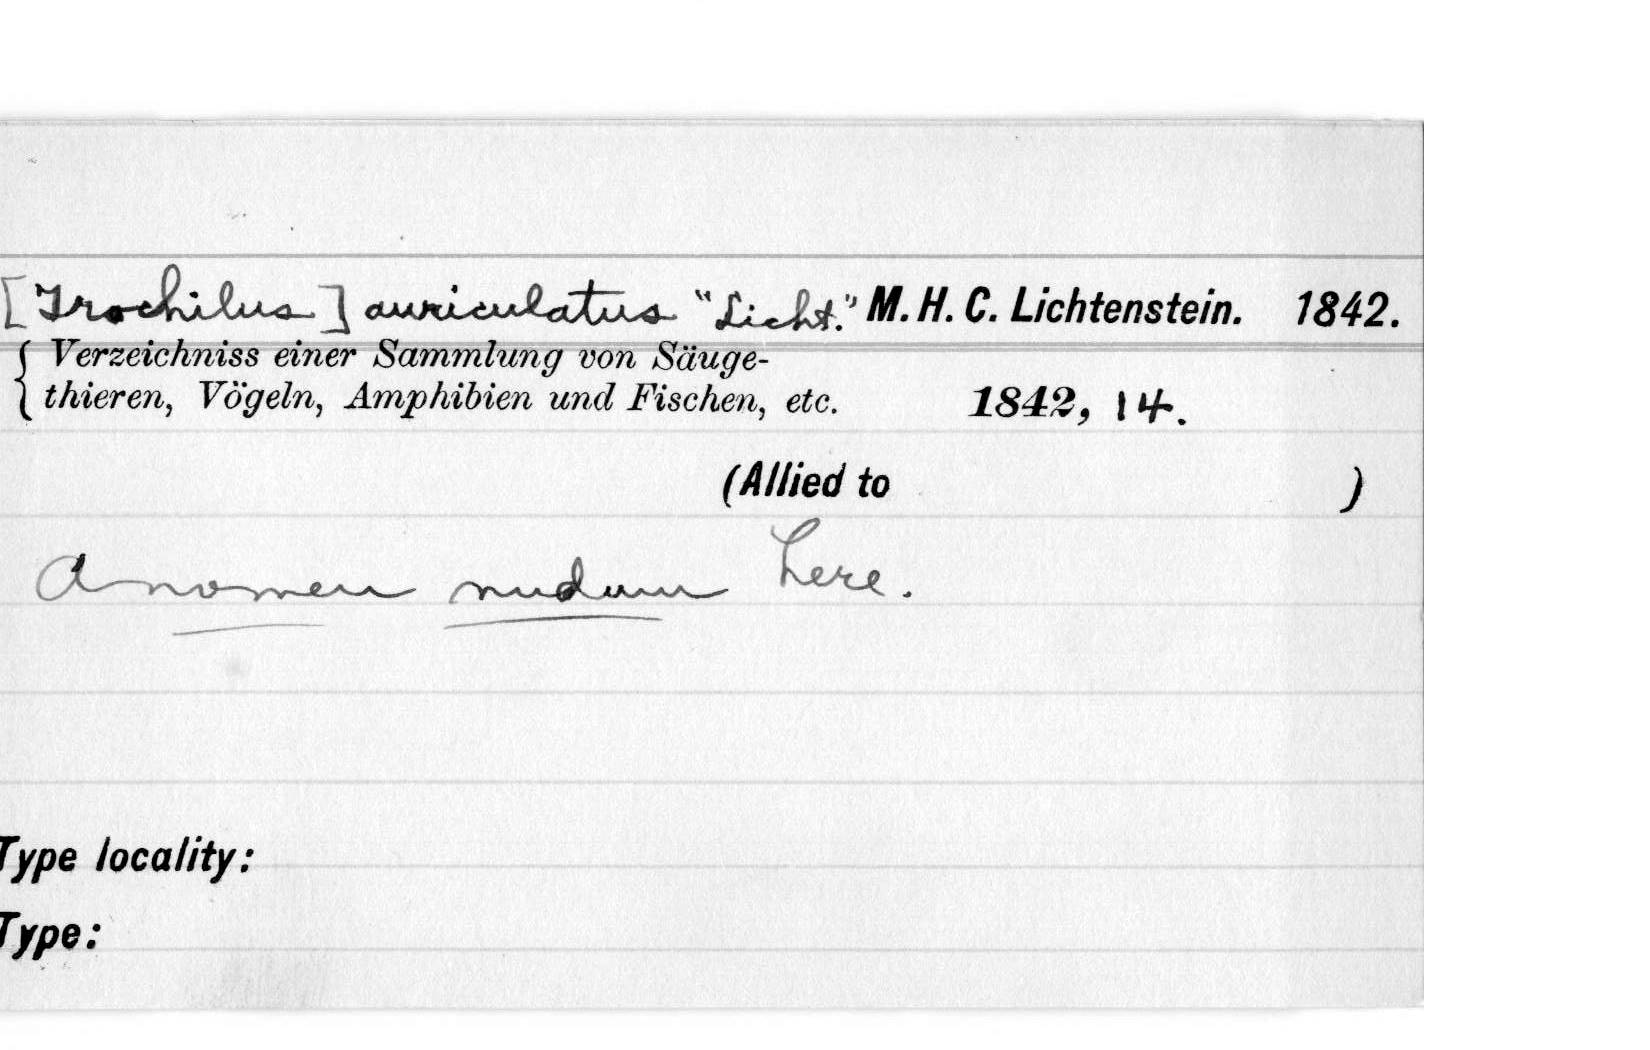 [Trochilus] auriculatus "Licht." M. H. C. Lichtenstein. 1842.
Verzeichniss einer Sammlung von Säuge-
thieren, Vögeln, Amphibien und Fischen, etc. 1842, 14.
(Allied to )
A nomen nudum here.
Type locality:
Type: